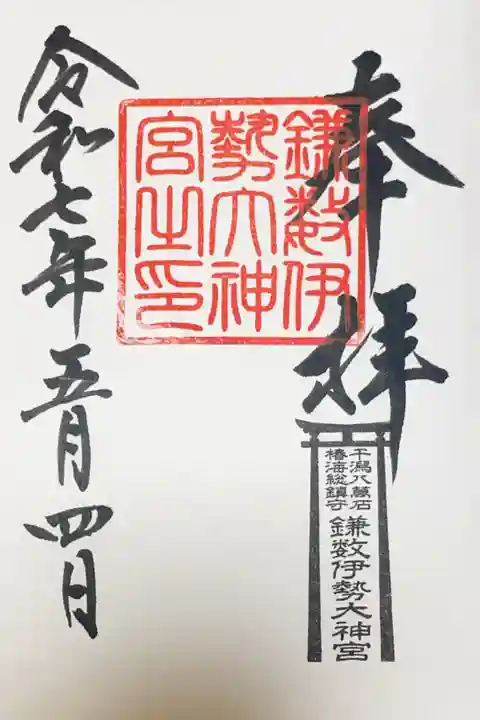 奉拝
鎌数伊
勢大神
宮之印
干潟八萬石
椿海総鎮守
鎌数伊勢大神宮
令和七年五月四日